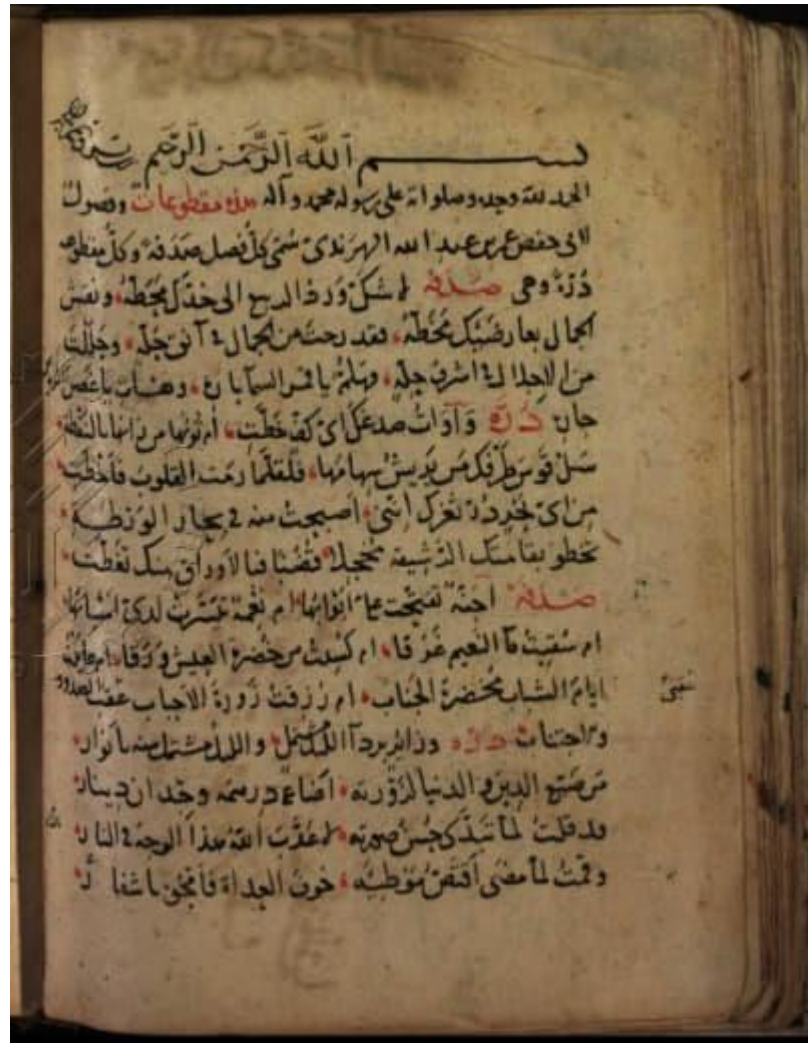 بسم الله الرحمن الرحيم
الحمد لله وحده وصلواته على رسوله محمد وآله هذه مقطوعات وفصول
لابى حفص عمر بن عبد الله الهرندى سمى كل فصل صدفة وكل مقطوعه
درة وهى صدفة لا شك ورد الربيع الى خدك محطه ونقش
الجمال بعارضيك مخطه فقد رحت من الجمال فى آنق حلة وجللت
من الاجلال فى اشرف جله وهلم يا قمر السما
درة صدغك اى كف خطت
سل قوس طرفك من يريش سهامها فلقلما رمت القلوب فأخطت
من اى بحر در ثغرك اننى اصبحت منه فى بحار الورطة
تخطو بقامتك الرشيقة مخجلا قضبا فبالاوراق منك تغطت
صدفة اجنة تفتحت ابوابها ام نعمة تيسرت لدى اسبابها
ام سقيت ما النعيم غدقا ام كسيت من خضرة العيش ورقا
ايام الشباب مخضرة الجناب ام رزقت زورة الاحباب عقب الصدود
والاجتناب درة وزائر برداء الليل مشتمل والليل مشتمل منه بانوار
من ضيع الدين والدنيا لزورته اضاع درهمه وجدان دينار
قد قلت لما تبدى حسن صورته لا عذب الله هذا الوجه فى النار
وقمت لما مضى اقتص موطئه خوف العداة فأمحو باشفار